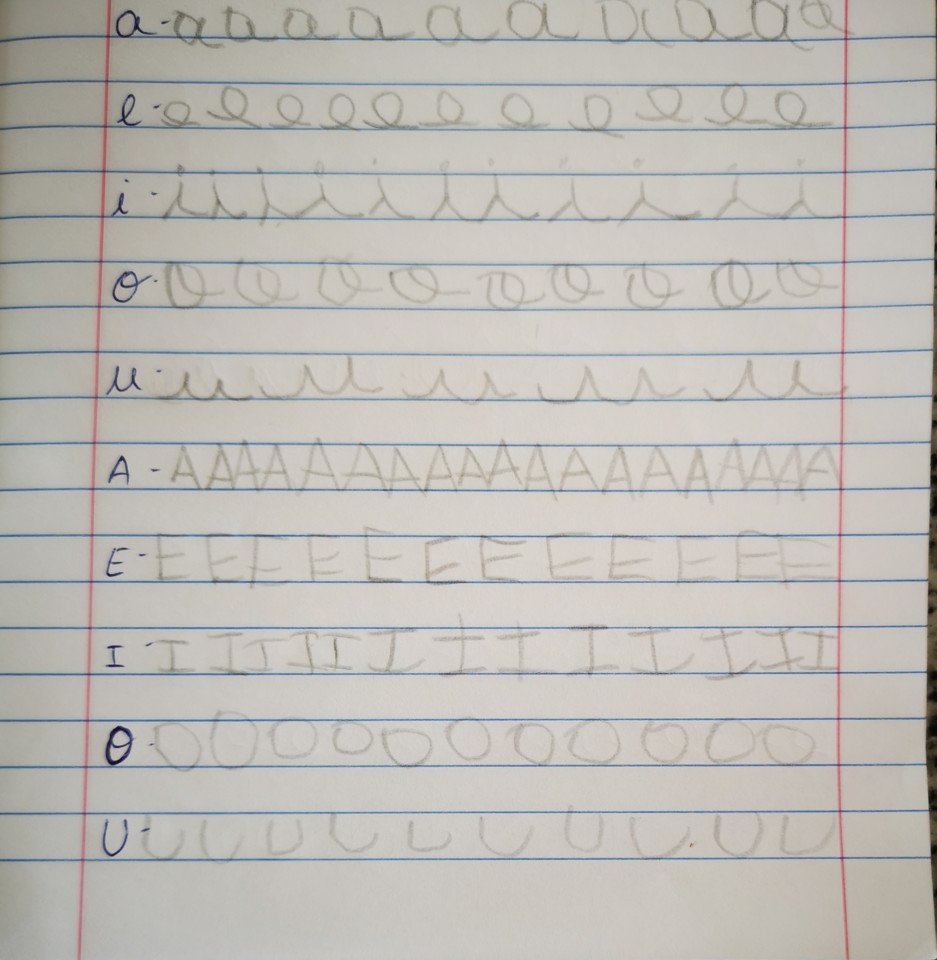 a - a a a a a a a a a a
e - e e e e e e e e e e e
i - i i i i i i i i i i i
o - o o o o o o o o o
u - u u u u u
A - A A A A A A A A A A A A A A A A A A A
E - E E E E E E E E E E E E
I - I I I I I I I I I I I I I
O - O O O O O O O O O O O
U - U U U U U U U U U U